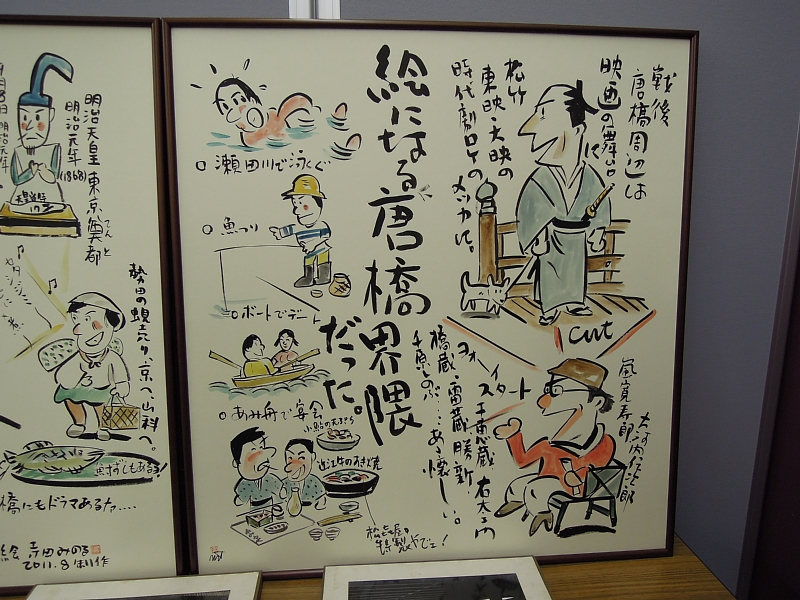 戦後
唐橋周辺は
映画の舞台に
松竹
東映・大映の
時代劇ロケの
メッカに。
cut
絵になる唐橋界隈
だった。
瀬田川で泳ぐ
魚つり
ボートでデート
あみ舟で宴会
小鮎の天ぷら
近江牛のすき焼
特製やでェ!
ヨォーイ
スタート
嵐寛寿郎
大河内伝次郎
千恵蔵 右太ェ門
橋蔵・雷蔵・勝新
千原しのぶ…あゝ懐しい。
明治天皇 東京奠都
てんと
明治元年
(1868)
勢田の蜆売り、京へ、山科へ。
ふなずしもあるョ!
橋にもドラマあるナ....
絵 寺田みのる
2011.8 制作